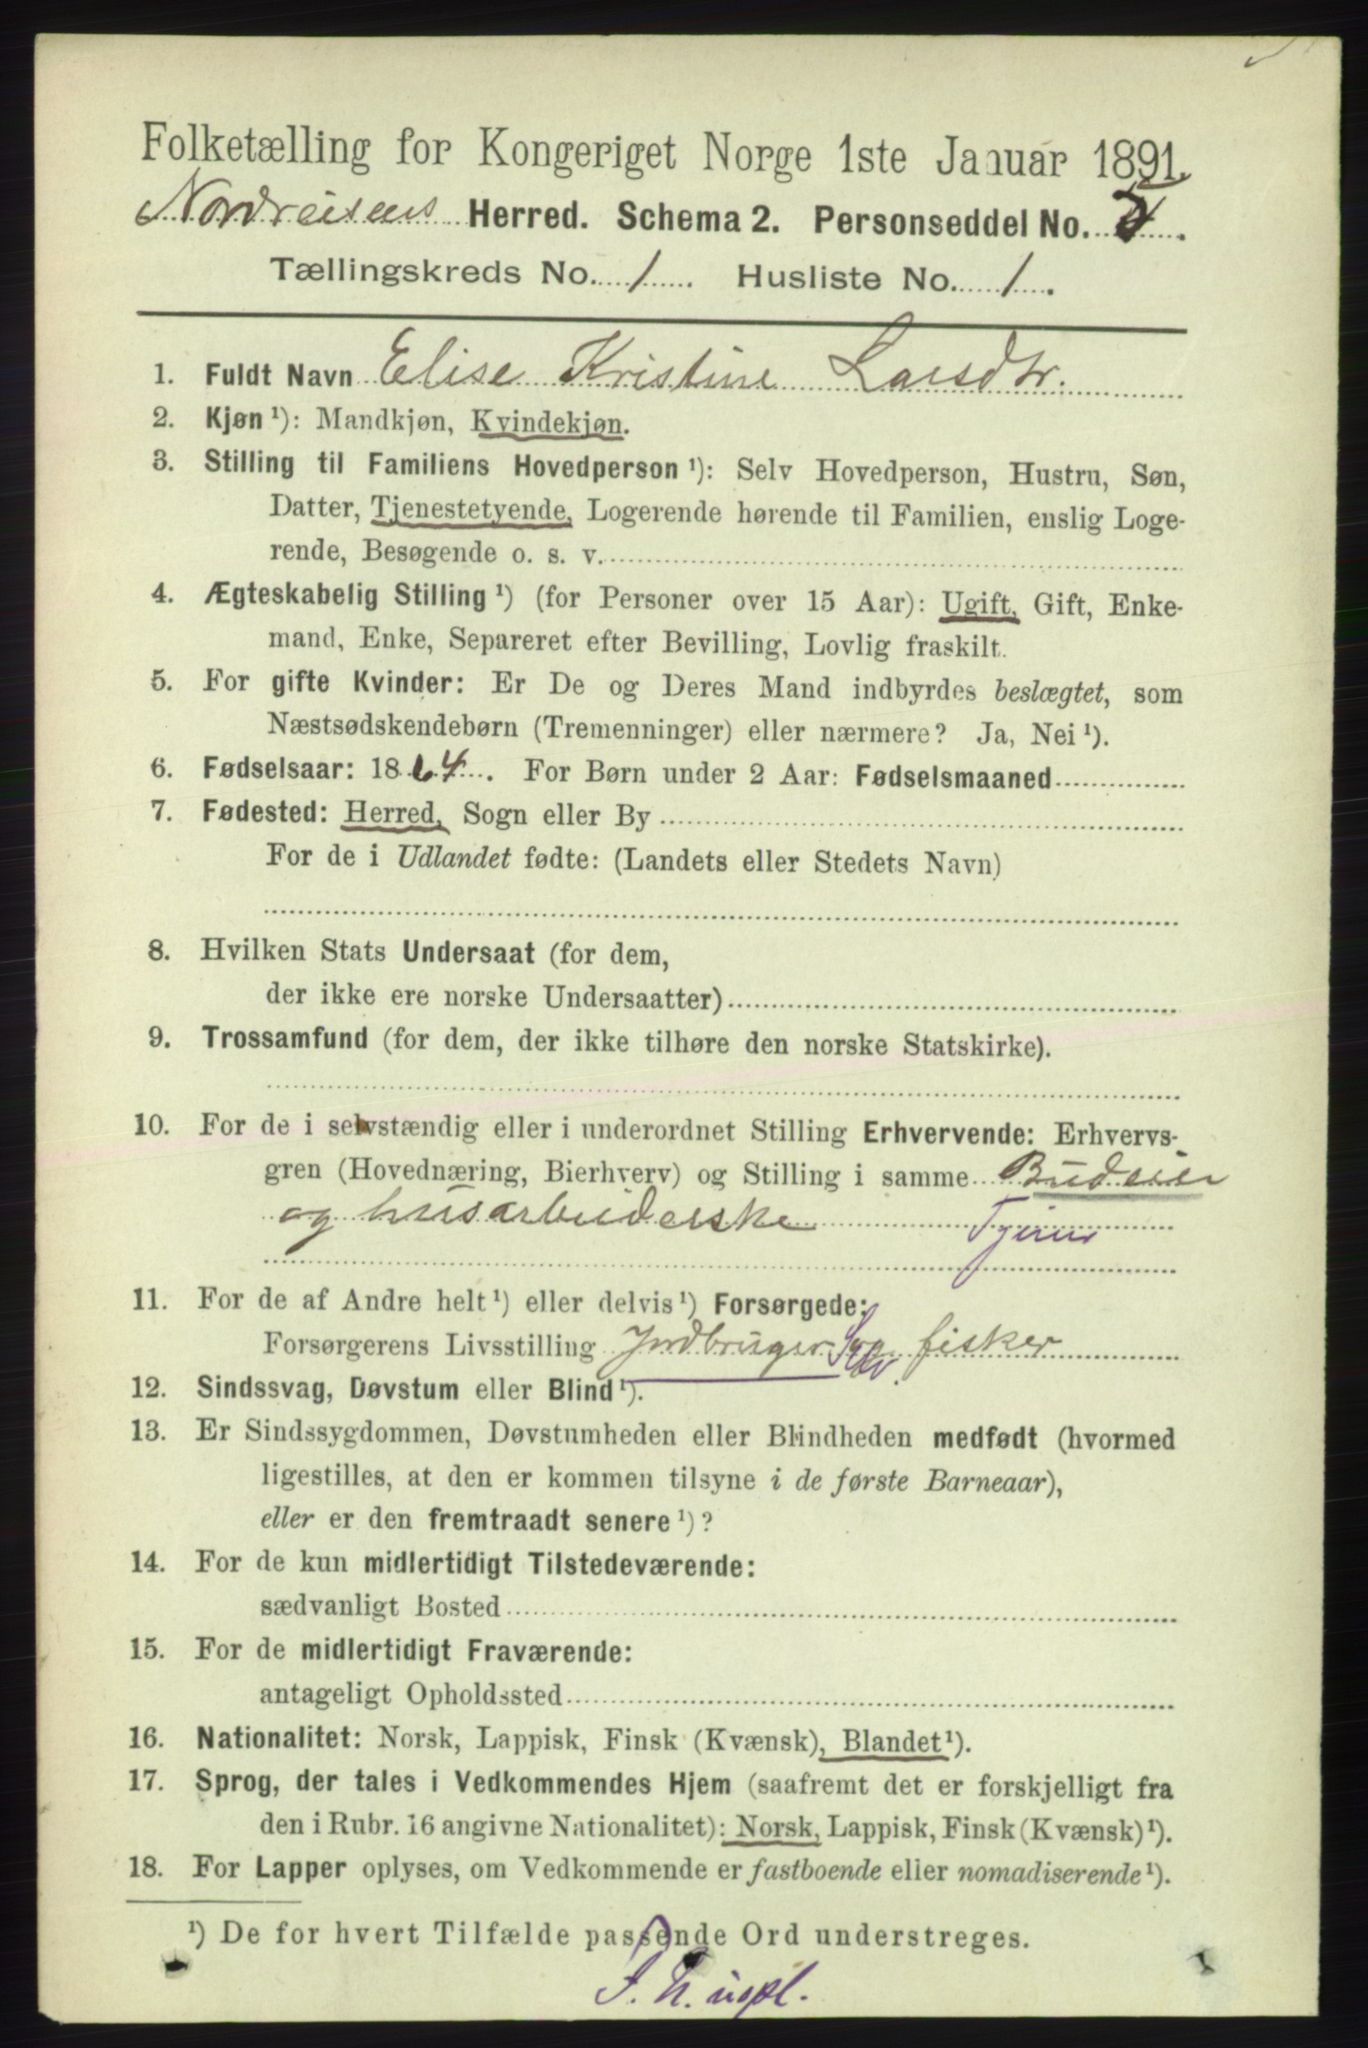 Folketælling for Kongeriget Norge 1ste Januar 1891.
Nordreisens Herred. Schema 2. Personseddel No.
Tællingskreds No. 1. Husliste No. 1.
1. Fuldt Navn Elise Kristine Larsdtr.
2. Kjøn ¹): Mandkjøn, Kvindekjøn.
3. Stilling til Familiens Hovedperson ¹): Selv Hovedperson, Hustru, Søn,
Datter, Tjenestetyende, Logerende hørende til Familien, enslig Loge-
rende, Besøgende o. s. v.
4. Ægteskabelig Stilling ¹) (for Personer over 15 Aar): Ugift, Gift, Enke-
mand, Enke, Separeret efter Bevilling, Lovlig fraskilt.
5. For gifte Kvinder: Er De og Deres Mand indbyrdes beslægtet, som
Næstsødskendebørn (Tremenninger) eller nærmere? Ja, Nei ¹).
6. Fødselsaar: 1864. For Børn under 2 Aar: Fødselsmaaned
7. Fødested: Herred, Sogn eller By
For de i Udlandet fødte: (Landets eller Stedets Navn)
8. Hvilken Stats Undersaat (for dem,
der ikke ere norske Undersaatter)
9. Trossamfund (for dem, der ikke tilhøre den norske Statskirke).
10. For de i selvstændig eller i underordnet Stilling Erhvervende: Erhvervs-
gren (Hovednæring, Bierhverv) og Stilling i samme Budeier
og husarbeiderske Tjener
11. For de af Andre helt ¹) eller delvis ¹) Forsørgede:
Forsørgerens Livsstilling Jordbruger og fisker
Selv.
12. Sindssvag, Døvstum eller Blind ¹).
13. Er Sindssygdommen, Døvstumheden eller Blindheden medfødt (hvormed
ligestilles, at den er kommen tilsyne i de første Barneaar),
eller er den fremtraadt senere ¹)?
14. For de kun midlertidigt Tilstedeværende:
sædvanligt Bosted
15. For de midlertidigt Fraværende:
antageligt Opholdssted
16. Nationalitet: Norsk, Lappisk, Finsk (Kvænsk), Blandet ¹).
17. Sprog, der tales i Vedkommendes Hjem (saafremt det er forskjelligt fra
den i Rubr. 16 angivne Nationalitet): Norsk, Lappisk, Finsk (Kvænsk) ¹).
18. For Lapper oplyses, om Vedkommende er fastboende eller nomadiserende ¹).
¹) De for hvert Tilfælde passende Ord understreges.